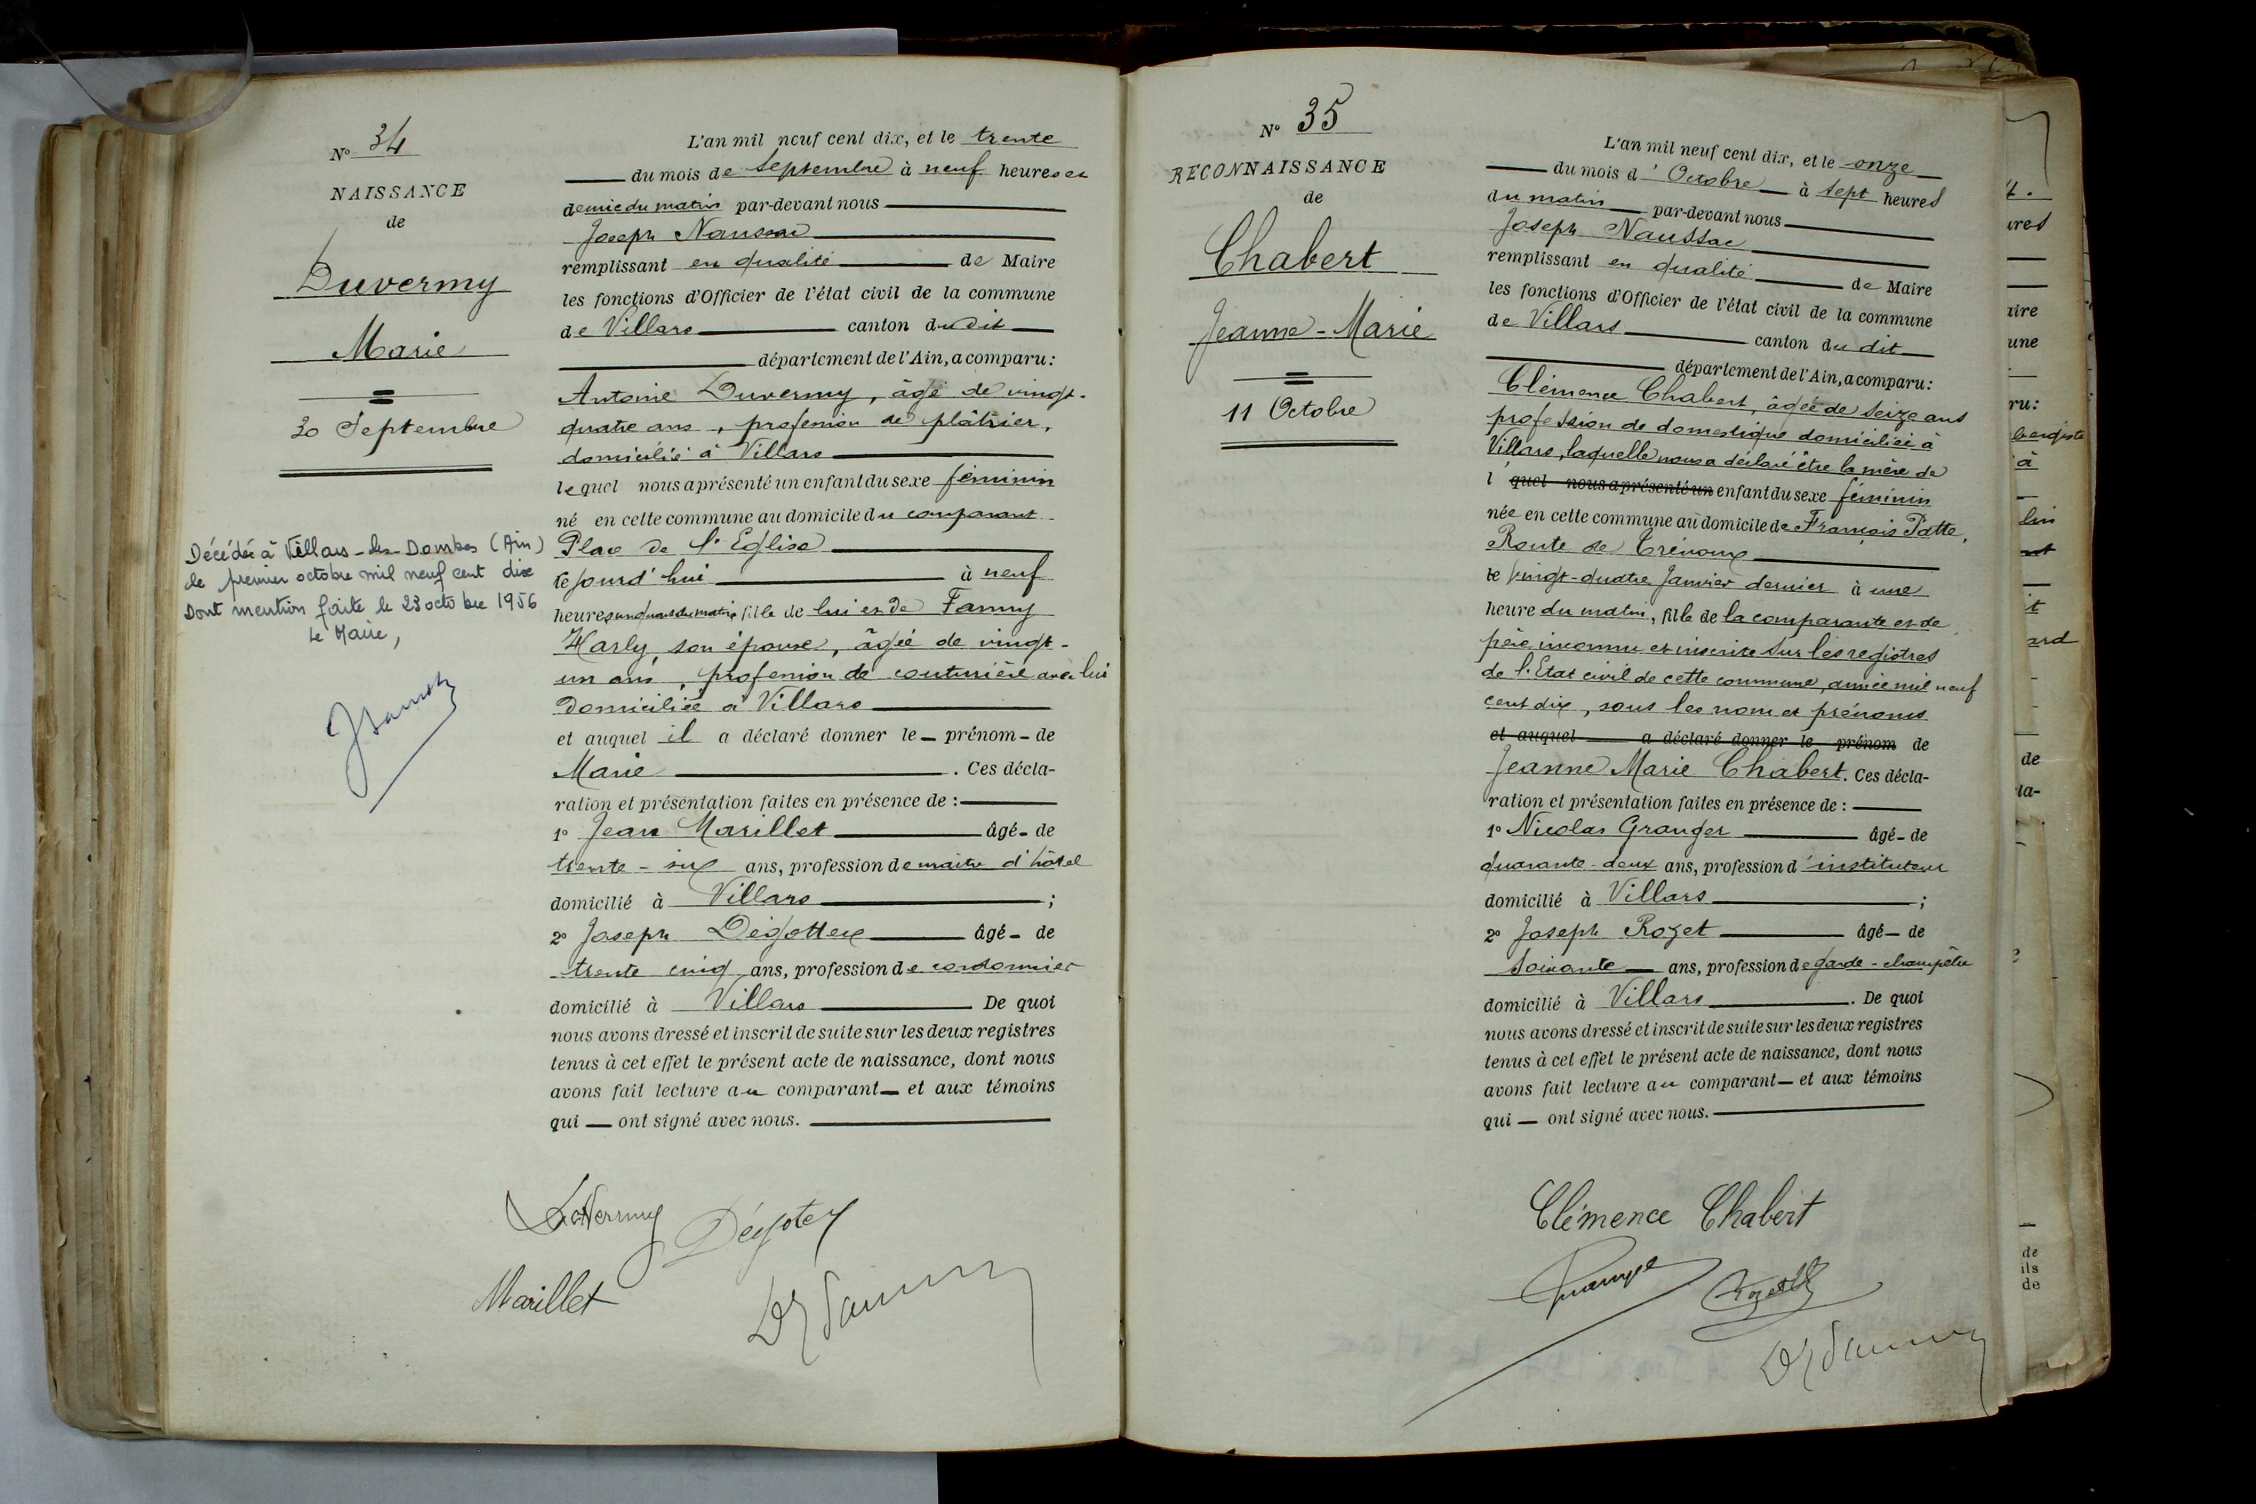 N° 34
NAISSANCE
de
Duvermy
Marie
30 Septembre
Décédée à Villars-les-Dombes (Ain)
le premier octobre mil neuf cent dix
Dont mention faite le 23 octobre 1956
Le Maire,
L'an mil neuf cent dix, et le trente
du mois de Septembre à neuf heures et
demie du matin par-devant nous
Joseph Naussac
remplissant en qualité de Maire
les fonctions d'Officier de l'état civil de la commune
de Villars canton du dit
département de l'Ain, a comparu:
Antoine Duvermy, âgé de vingt-
quatre ans, profession de plâtrier,
domicilié à Villars
lequel nous a présenté un enfant du sexe féminin
né en cette commune au domicile du comparant
Place de l'Eglise
cejourd'hui à neuf
heures un quart du matin fille de lui et de Fanny
Harly, son épouse, âgée de vingt-
un ans, profession de couturière avec lui
domiciliée à Villars
et auquel il a déclaré donner le prénom de
Marie. Ces décla-
ration et présentation faites en présence de :
1° Jean Marillet âgé de
trente-six ans, profession de maître d'hôtel
domicilié à Villars ;
2° Joseph Dégottex âgé de
trente cinq ans, profession de cordonnier
domicilié à Villars De quoi
nous avons dressé et inscrit de suite sur les deux registres
tenus à cet effet le présent acte de naissance, dont nous
avons fait lecture au comparant et aux témoins
qui ont signé avec nous.
Duvermy Dégotex
Marillet
N° 35
RECONNAISSANCE
de
Chabert
Jeanne-Marie
11 Octobre
L'an mil neuf cent dix, et le onze
du mois d'Octobre à sept heures
du matin par-devant nous
Joseph Naussac
remplissant en qualité de Maire
les fonctions d'Officier de l'état civil de la commune
de Villars canton du dit
département de l'Ain, a comparu:
Clémence Chabert, âgée de seize ans
profession de domestique domiciliée à
Villars, laquelle nous a déclaré être la mère de
l' quel nous a présenté un enfant du sexe féminin
née en cette commune au domicile de François Patte,
Route de Trévoux
le vingt-quatre Janvier dernier à une
heure du matin, fille de la comparante et de
père inconnu et inscrite sur les registres
de l'Etat civil de cette commune, année mil neuf
cent dix, sous les nom et prénoms
et auquel a déclaré donner le prénom de
Jeanne Marie Chabert. Ces décla-
ration et présentation faites en présence de :
1° Nicolas Granger âgé de
quarante-deux ans, profession d'instituteur
domicilié à Villars ;
2° Joseph Rozet âgé de
soixante ans, profession de garde-champêtre
domicilié à Villars. De quoi
nous avons dressé et inscrit de suite sur les deux registres
tenus à cet effet le présent acte de naissance, dont nous
avons fait lecture au comparant et aux témoins
qui ont signé avec nous.
Clémence Chabert